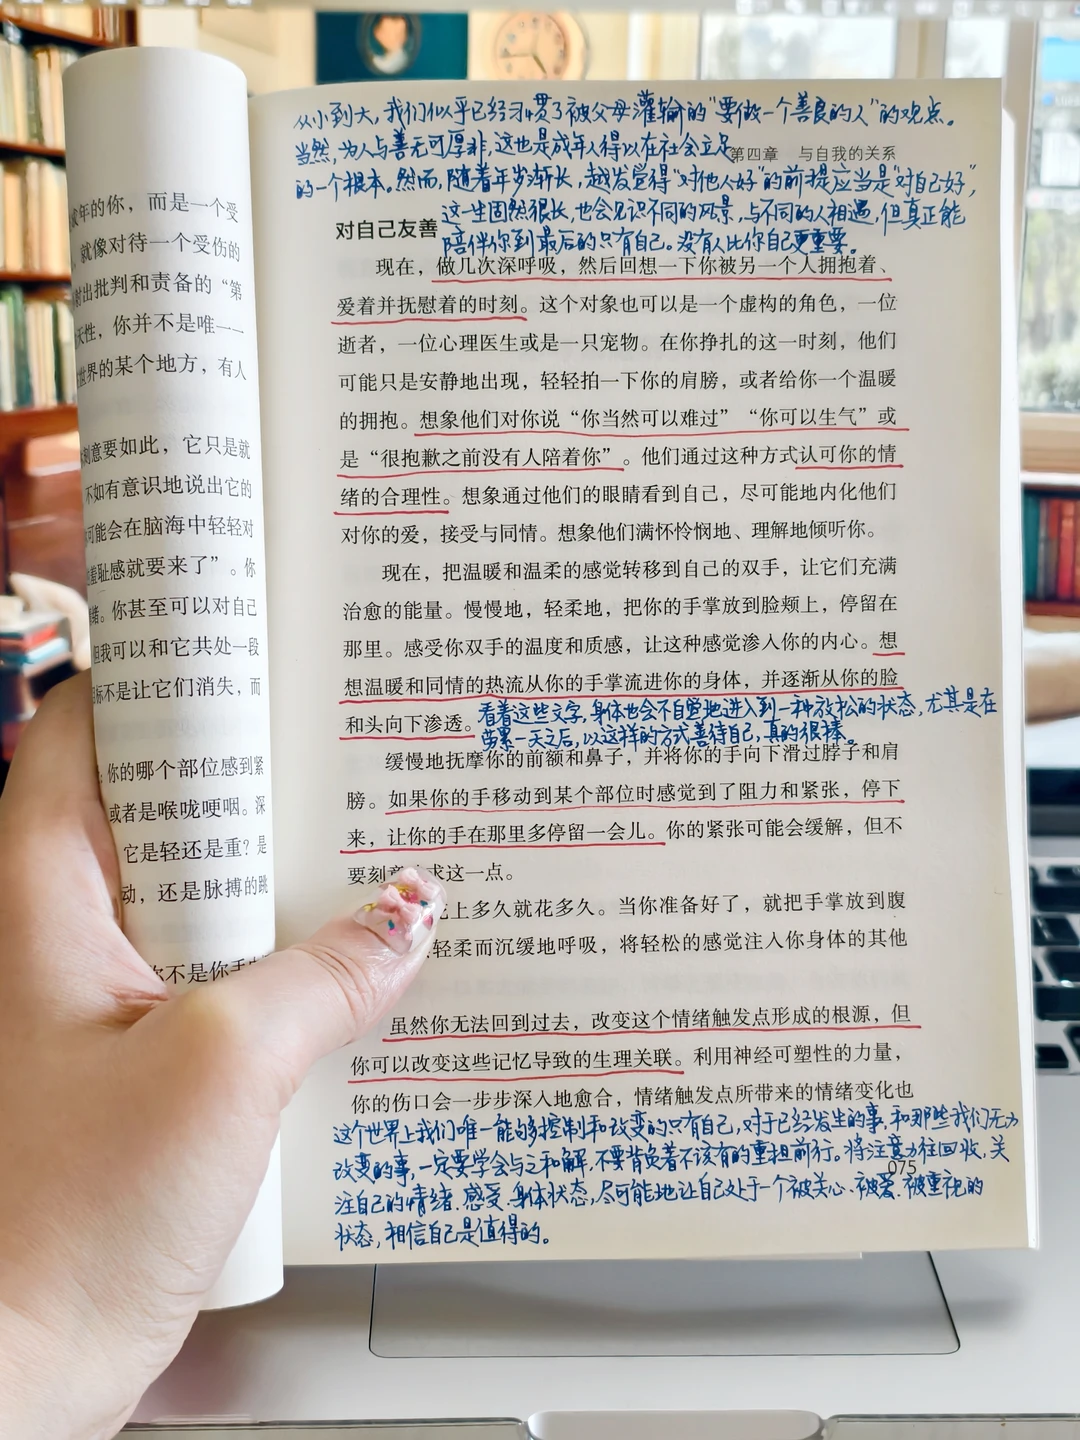 成年的你，而是一个受
就像对待一个受伤的
射出批判和责备的“第
天性，你并不是唯一一
世界的某个地方，有人
刻意要如此，它只是就
不如有意识地说出它的
可能会在脑海中轻轻对
羞耻感就要来了”。你
绪。你甚至可以对自己
但我可以和它共处一段
目标不是让它们消失，而
：你的哪个部位感到紧
或者是喉咙哽咽。深
它是轻还是重？是
动，还是脉搏的跳
你不是你手
从小到大，我们似乎已经习惯了被父母灌输的“要做一个善良的人”的观点。
当然，为人与善无可厚非，这也是成年人得以在社会立足
第四章 与自我的关系
的一个根本。然而，随着年岁渐长，越发觉得“对他人好”的前提应当是“对自己好”，
这一生固然很长，也会见识不同的风景，与不同的人相遇，但真正能
对自己友善
陪伴你到最后的只有自己。没有人比你自己更重要。
现在，做几次深呼吸，然后回想一下你被另一个人拥抱着、
爱着并抚慰着的时刻。这个对象也可以是一个虚构的角色，一位
逝者，一位心理医生或是一只宠物。在你挣扎的这一时刻，他们
可能只是安静地出现，轻轻拍一下你的肩膀，或者给你一个温暖
的拥抱。想象他们对你说“你当然可以难过”“你可以生气”或
是“很抱歉之前没有人陪着你”。他们通过这种方式认可你的情
绪的合理性。想象通过他们的眼睛看到自己，尽可能地内化他们
对你的爱，接受与同情。想象他们满怀怜悯地、理解地倾听你。
现在，把温暖和温柔的感觉转移到自己的双手，让它们充满
治愈的能量。慢慢地，轻柔地，把你的手掌放到脸颊上，停留在
那里。感受你双手的温度和质感，让这种感觉渗入你的内心。想
想温暖和同情的热流从你的手掌流进你的身体，并逐渐从你的脸
和头向下渗透。
看着这些文字，身体也会不自觉地进入到一种放松的状态，尤其是在
劳累一天之后，以这样的方式善待自己，真的很棒。
缓慢地抚摩你的前额和鼻子，并将你的手向下滑过脖子和肩
膀。如果你的手移动到某个部位时感觉到了阻力和紧张，停下
来，让你的手在那里多停留一会儿。你的紧张可能会缓解，但不
要刻意求这一点。
花上多久就花多久。当你准备好了，就把手掌放到腹
轻柔而沉缓地呼吸，将轻松的感觉注入你身体的其他
虽然你无法回到过去，改变这个情绪触发点形成的根源，但
你可以改变这些记忆导致的生理关联。利用神经可塑性的力量，
你的伤口会一步步深入地愈合，情绪触发点所带来的情绪变化也
这个世界上我们唯一能够控制和改变的只有自己，对于已经发生的事，和那些我们无力
改变的事，一定要学会与之和解，不要背负着不该有的重担前行。将注意力往回收，关
075
注自己的情绪、感受、身体状态，尽可能地让自己处于一个被关心、被爱、被重视的
状态，相信自己是值得的。